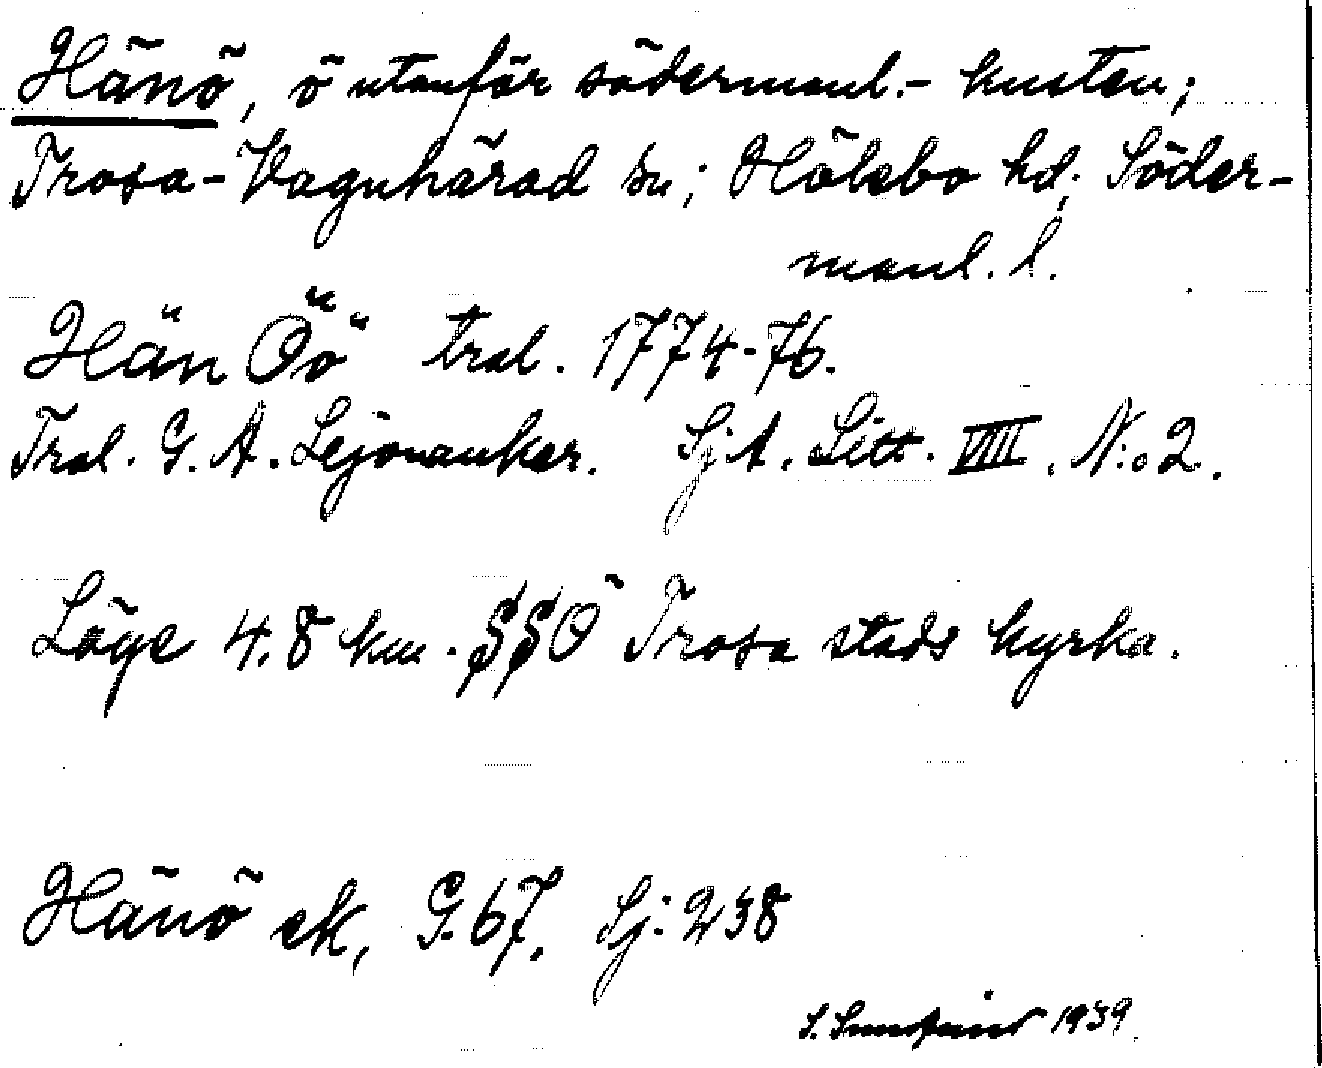 Hänö, ö utanför södermanl.- kusten;
Trosa-Vagnhärad sn; Hölebo hd; Söder-
manl. l.
Hän Öö tral. 1774-76.
Tral. G. A. Lejonanker. SjA. Litt. VIIII. N:o 2.
Läge 4.8 km. SSÖ Trosa stads kyrka.
Hänö ek, G. 67. Sj: 238
S. 1939